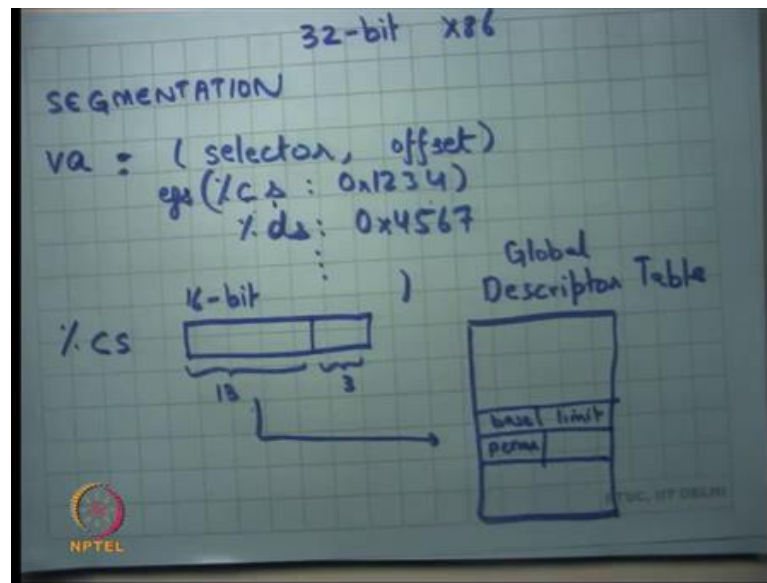 32-bit x86
SEGMENTATION
va : (selector, offset)
egs (%cs : 0x1234)
%ds : 0x4567
⋮ )
Global
Descriptor Table
16-bit
%cs
13 3
base limit
perm
NPTEL
ETSC, IIT DELHI